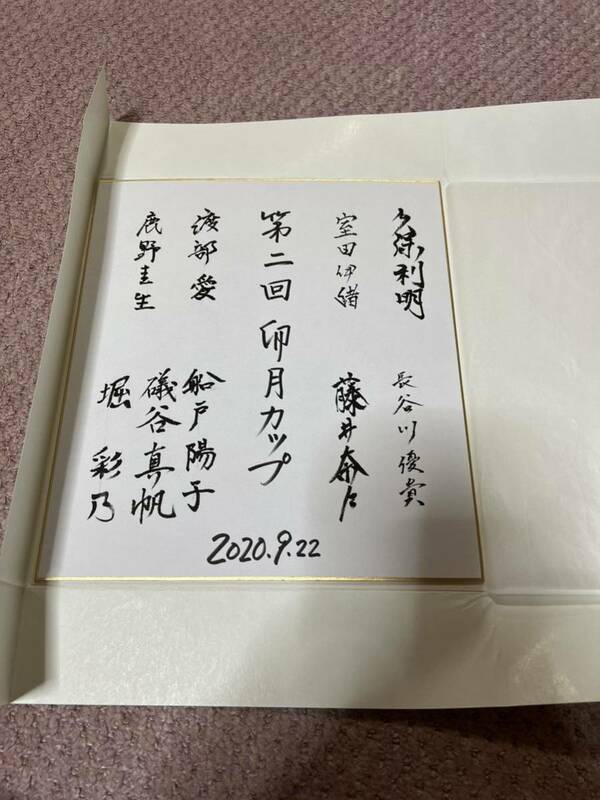 久保利明
長谷川優貴
室田伊緒
藤井奈々
第二回 卯月カップ
渡部愛
船戸陽子
鹿野圭生
磯谷真帆
堀 彩乃
2020.9.22